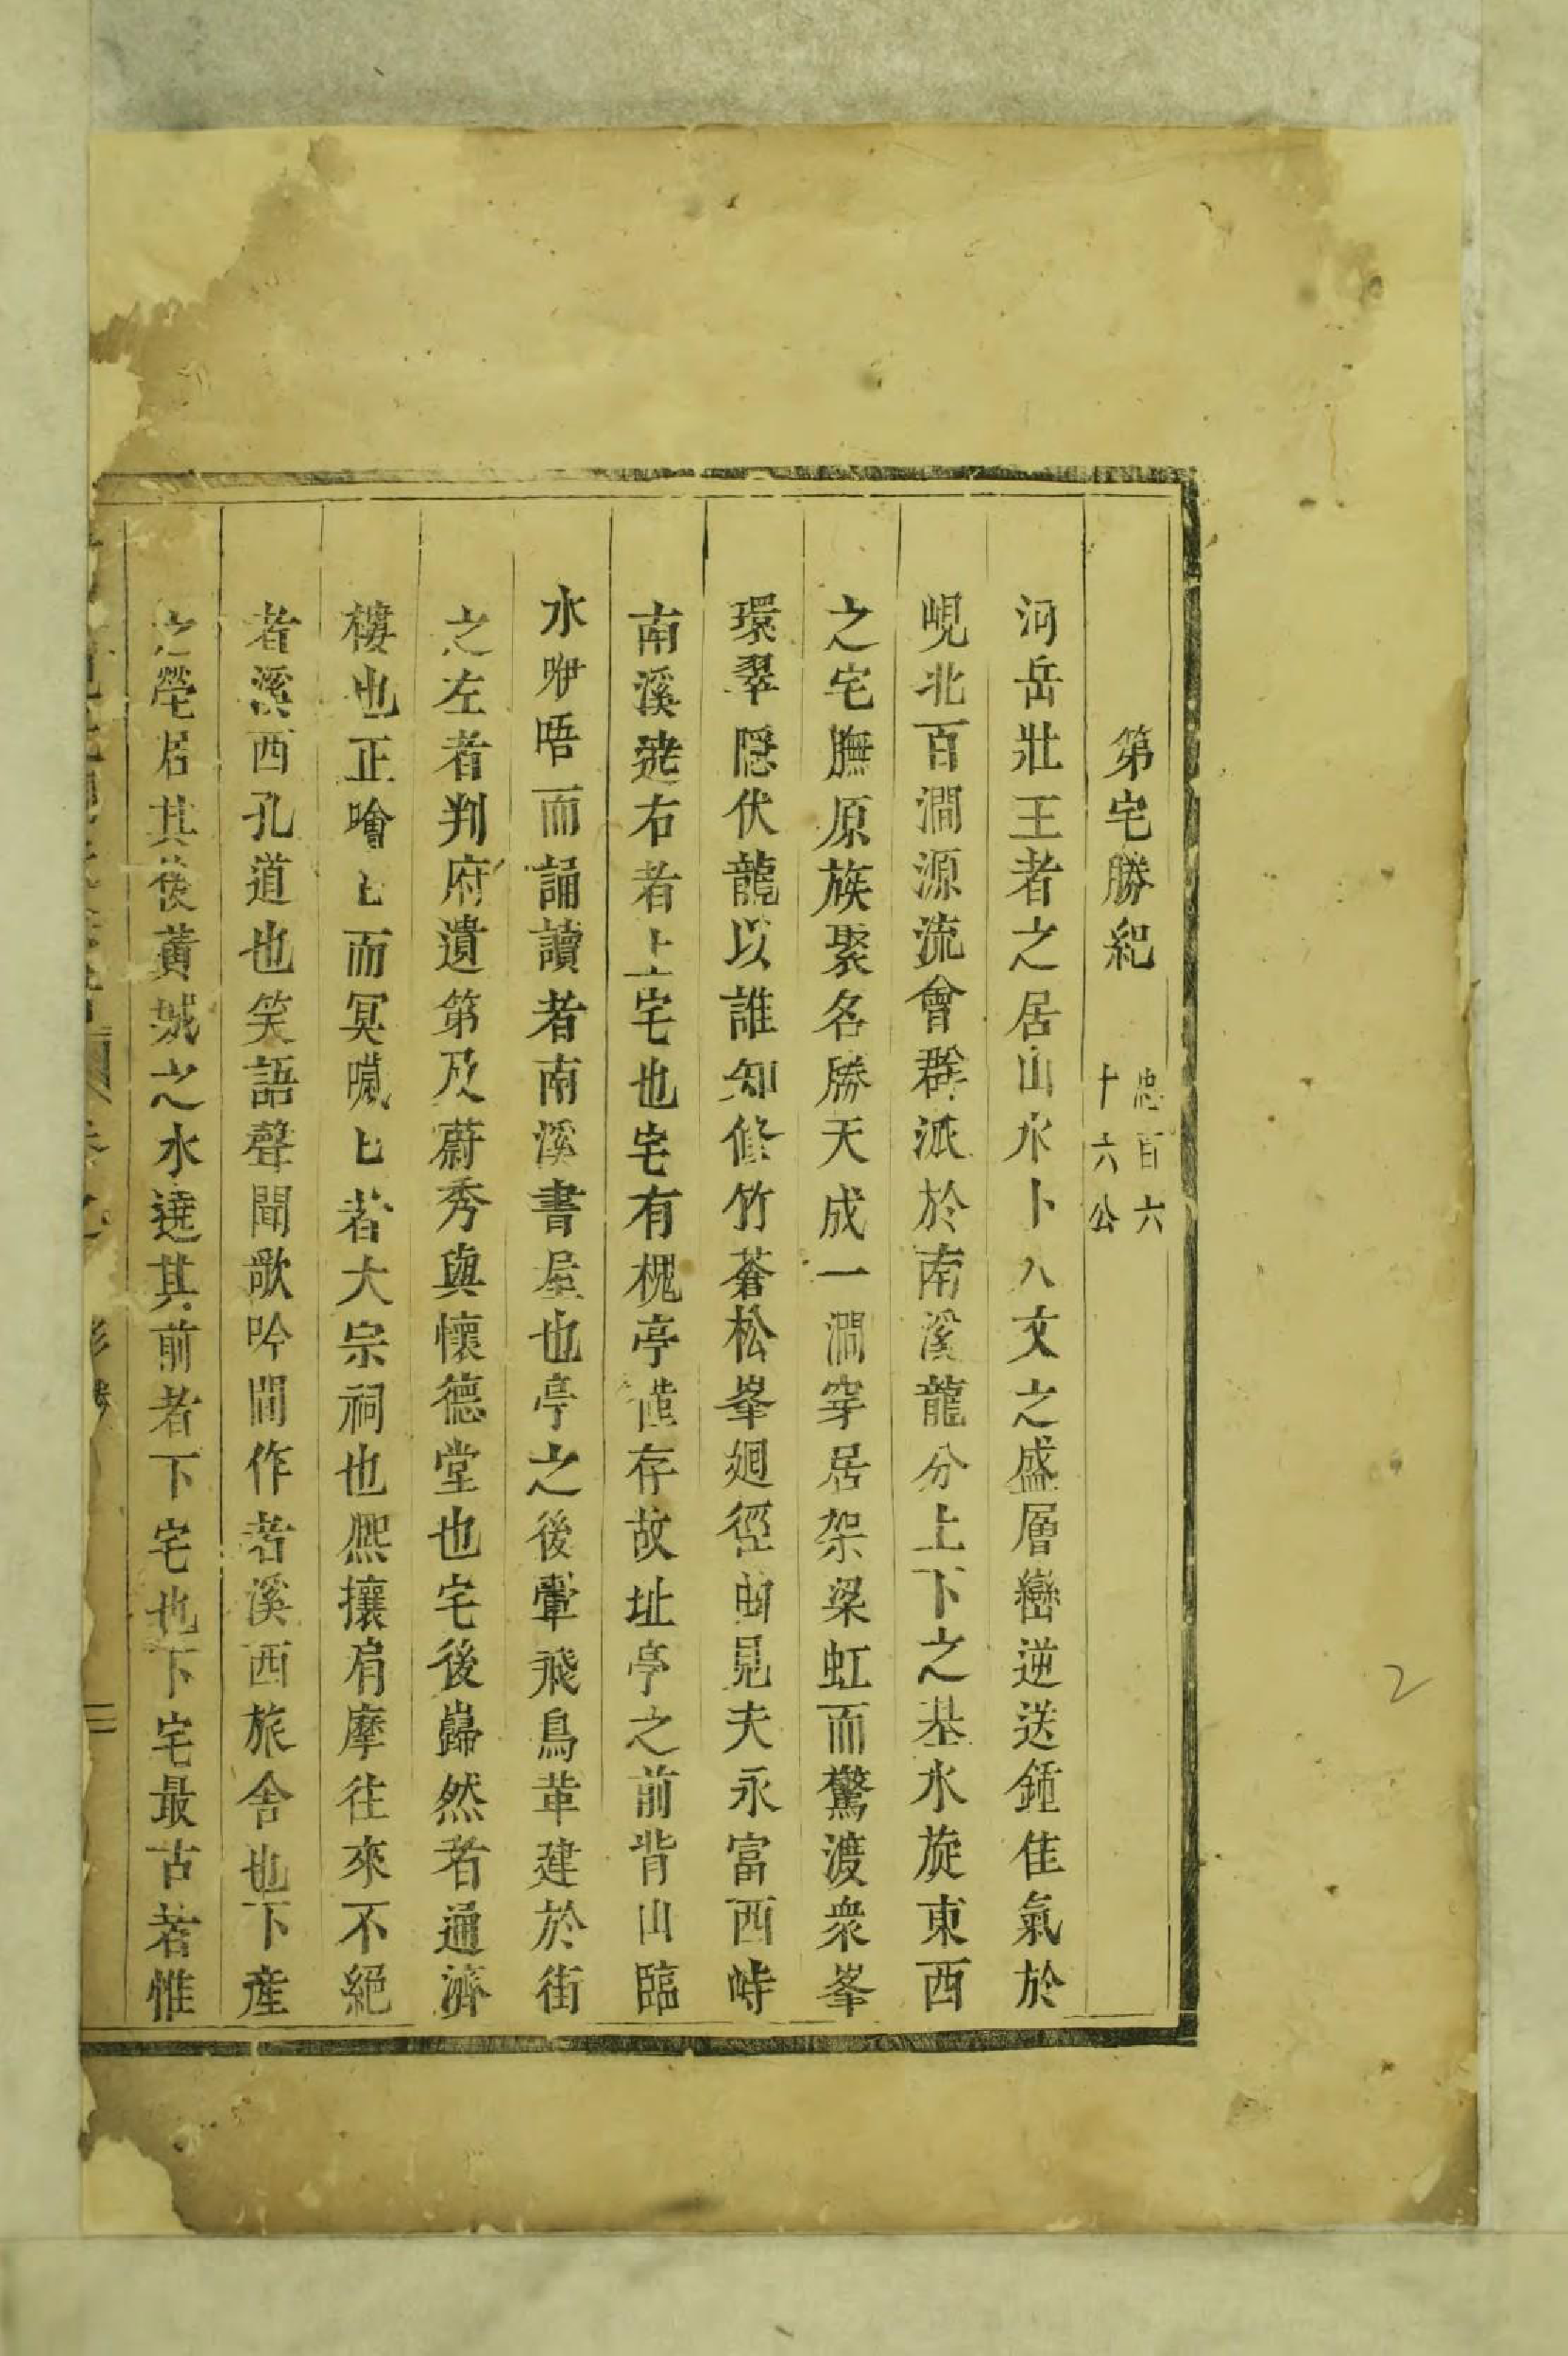 第宅勝紀 忠百六十六公
河岳壯王者之居山水卜人文之盛層巒逆送鍾佳氣於
峴北百澗源流會群派於南溪龍分上下之基水旋東西
之宅膴原族聚名勝天成一澗穿居架梁虹而驚渡衆峯
環翠隱伏龍以誰知修竹蒼松峯廻徑曲見夫永富西峙
南溪遶右者上宅也宅有槐亭僅存故址亭之前背山臨
水咿唔而誦讀者南溪書屋也亭之後翬飛鳥革建於街
之左者判府遺第及蔚秀與懷德堂也宅後巋然者通濟
樓也正噲匕而冥噦匕者大宗祠也熙攘肩摩往來不絕
者溪西孔道也笑語聲聞歌吟間作者溪西旅舍也下產
之塋居其後黃城之水遶其前者下宅也下宅最古者惟